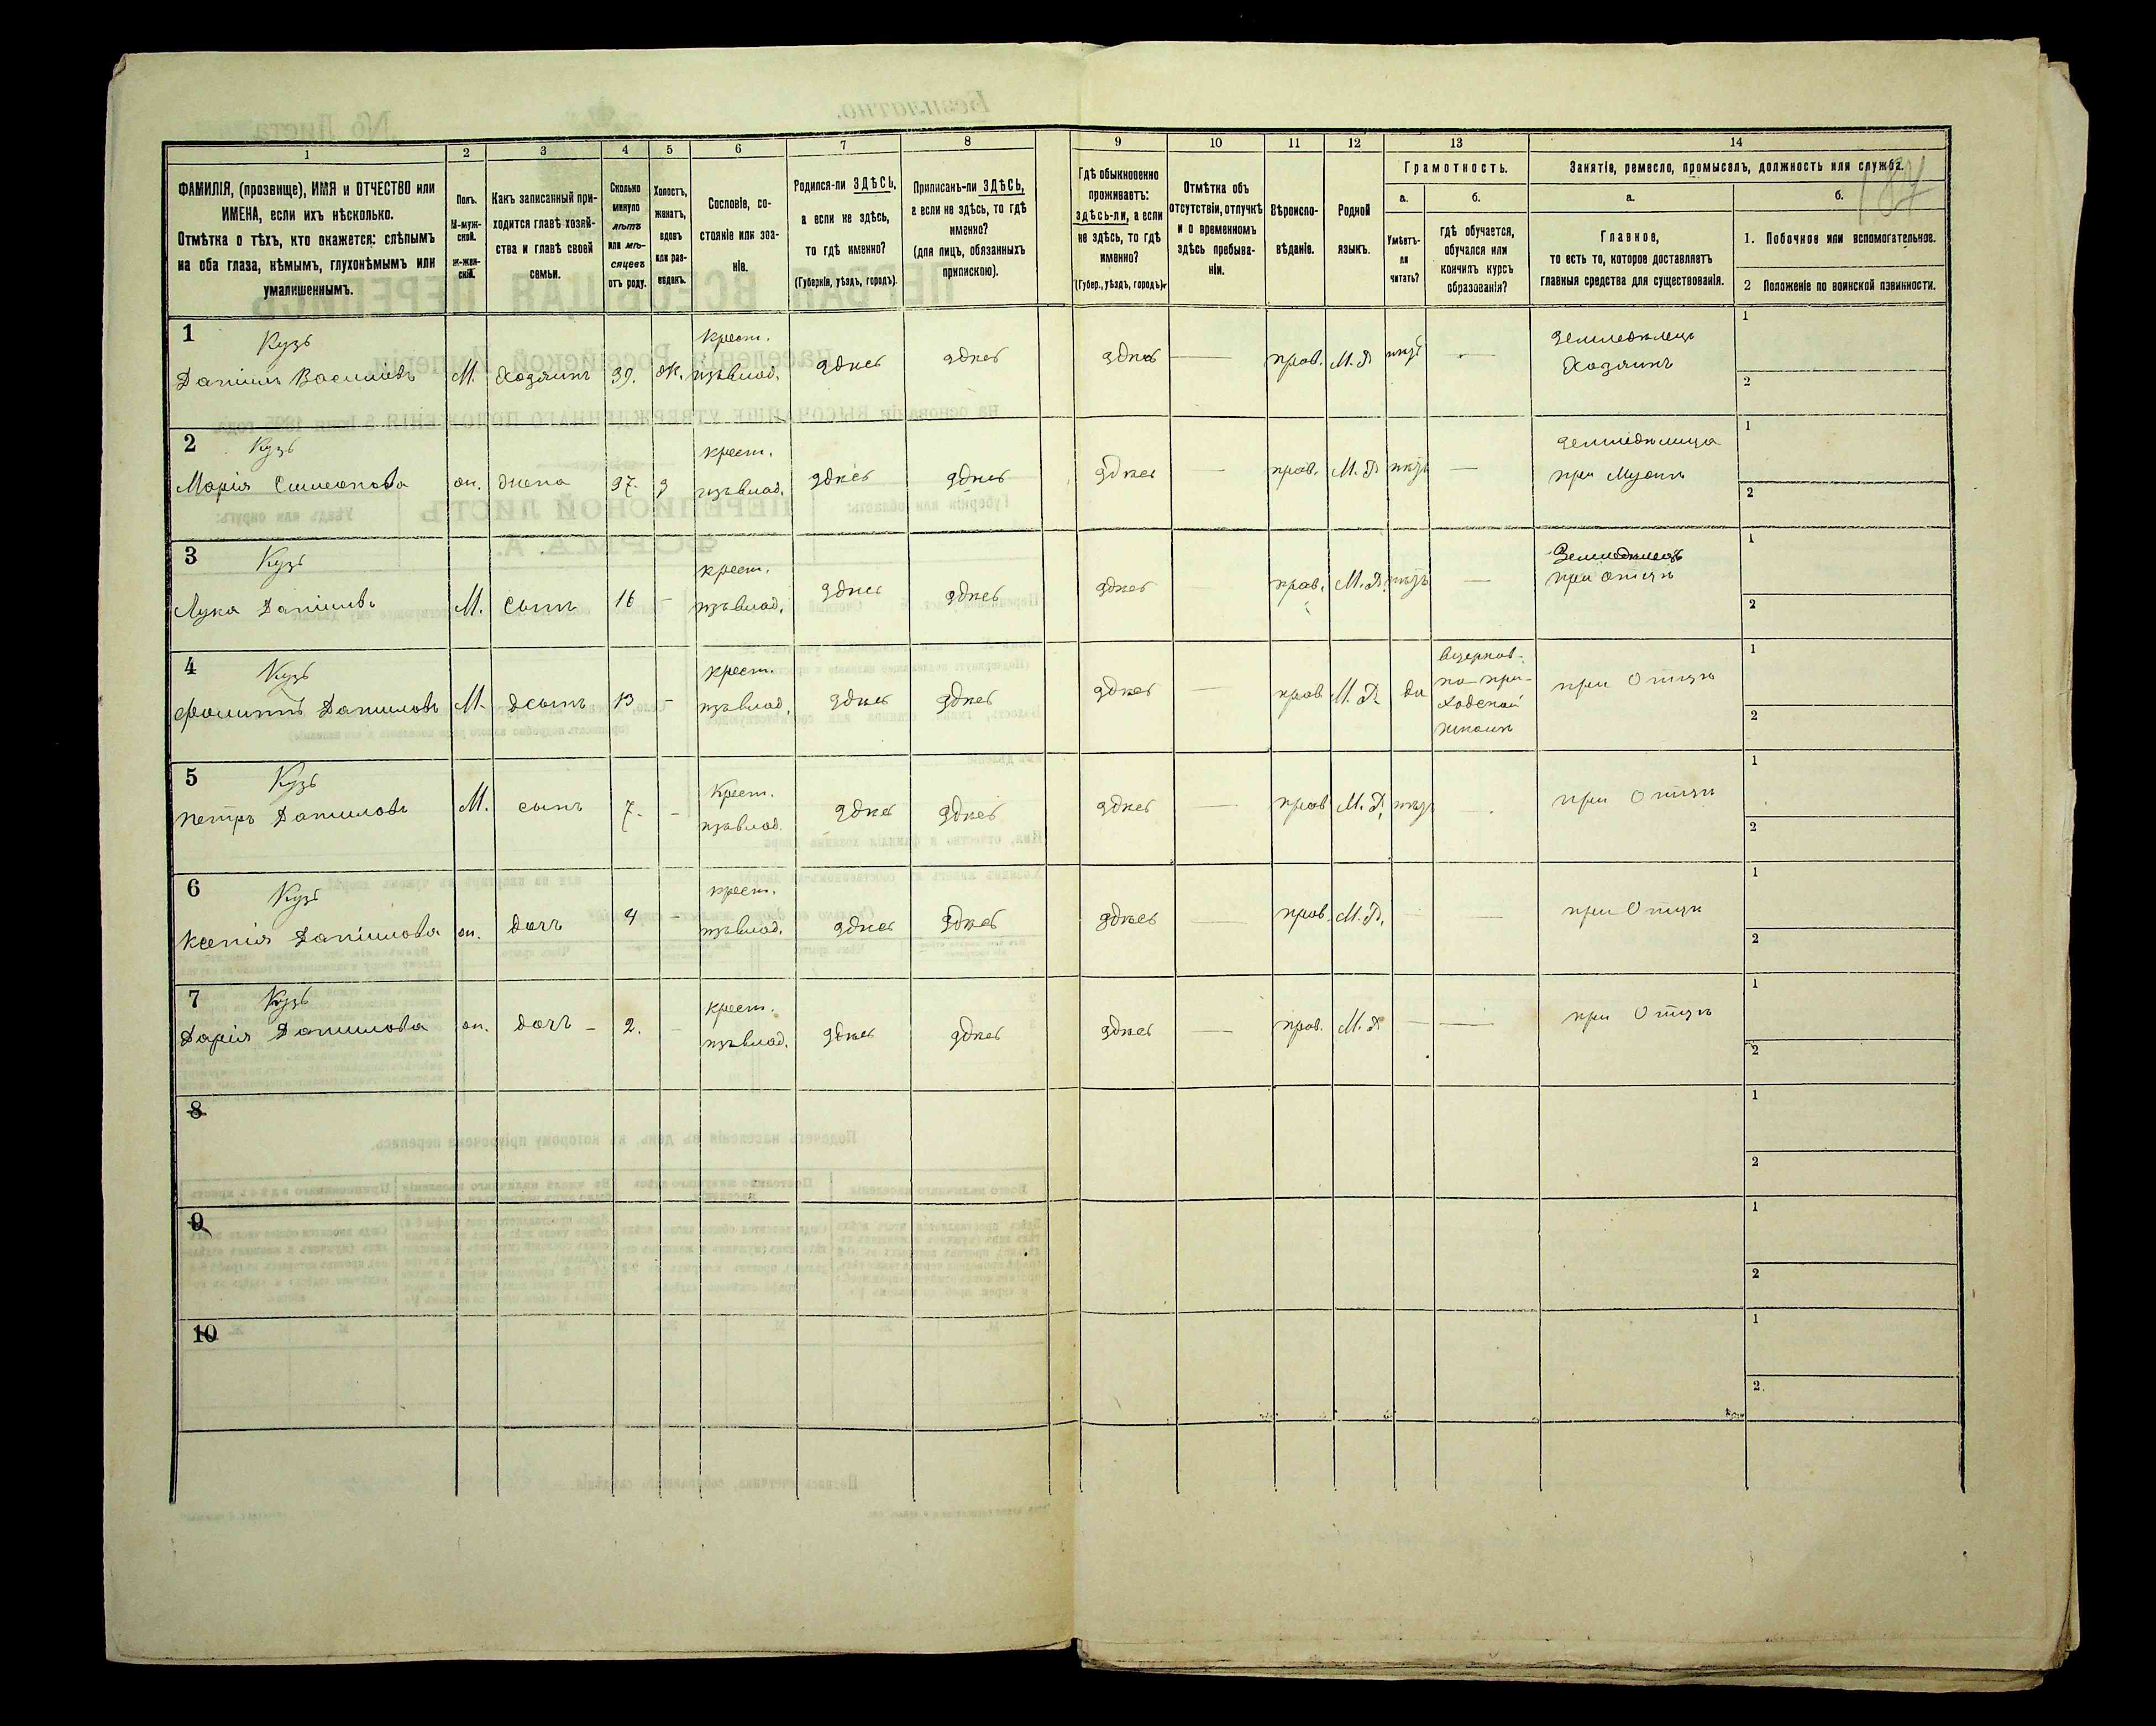 187
1 2 3 4 5 6 7 8 9 10 11 12 13 14
ФАМИЛІЯ, (прозвище), ИМЯ и ОТЧЕСТВО или
ИМЕНА, если ихъ нѣсколько.
Отмѣтка о тѣхъ, кто окажется: слѣпымъ
на оба глаза, нѣмымъ, глухонѣмымъ или
умалишеннымъ.
Полъ.
М-муж-
ской.
Ж-жен-
скій.
Какъ записанный при-
ходится главѣ хозяй-
ства и главѣ своей
семьи.
Сколько
минуло
лѣтъ
или мѣ-
сяцевъ
отъ роду.
Холостъ,
женатъ,
вдовъ
или раз-
веденъ.
Сословіе, со-
стояніе или зва-
ніе.
Родился-ли ЗДѢСЬ,
а если не здѣсь,
то гдѣ именно?
(Губернія, уѣздъ, городъ).
Приписанъ-ли ЗДѢСЬ,
а если не здѣсь, то гдѣ
именно?
(для лицъ, обязанныхъ
припискою).
Гдѣ обыкновенно
проживаетъ:
здѣсь-ли, а если
не здѣсь, то гдѣ
именно?
(Губер., уѣздъ, городъ).
Отмѣтка объ
отсутствіи, отлучкѣ
и о временномъ
здѣсь пребыва-
ніи.
Вѣроиспо-
вѣданіе.
Родной
языкъ.
Грамотность.
а.
Умѣетъ-
ли
читать?
б.
гдѣ обучается,
обучался или
кончилъ курсъ
образованія?
Занятіе, ремесло, промыселъ, должность или служба.
а.
Главное,
то есть то, которое доставляетъ
главныя средства для существованія.
б.
1. Побочное или вспомогательное.
2 Положеніе по воинской повинности.
1 Кузь
Даніилъ Василіевъ М. Хозяинъ 39. Ж. крест. изъ влад. здѣсь здѣсь здѣсь — прав. М. Р. нѣтъ — Земледѣлецъ
Хозяинъ
1
2
2 Кузь
Марія Симеонова ж. жена 37 з крест. изъ влад. здѣсь здѣсь здѣсь — прав. М. Р. нѣтъ — земледѣлица
при мужѣ
1
2
3 Кузь
Лука Даніиловъ М. Сынъ 16 - крест. изъ влад. здѣсь здѣсь здѣсь — прав. М. Р. нѣтъ — Земледѣлецъ
при отцѣ
1
2
4 Кузь
Филиппъ Даниловъ М. сынъ 13 - крест. изъ влад. здѣсь здѣсь здѣсь — прав М. Р. да
въ церков-
но-при-
ходской
школѣ
при Отцѣ
1
2
5 Кузь
Петръ Даниловъ М. сынъ 7. - Крест. изъ влад. здѣсь здѣсь здѣсь — прав М. Р. нѣтъ — при Отцѣ
1
2
6 Кузь
Ксенія Даніилова ж. дочь 4 - крест. изъ влад. здѣсь здѣсь здѣсь — прав. М. Р. — — при Отцѣ
1
2
7 Кузь
Дарія Данилова ж. дочь - 2. - крест. изъ влад. здѣсь здѣсь здѣсь — прав. М. Р. — — при Отцѣ
1
2
8
1
2
9
1
2
10
1
2.